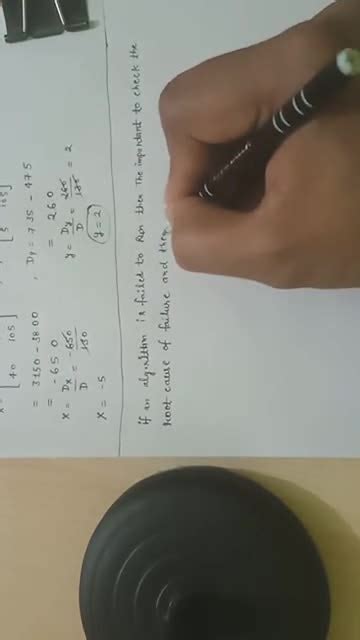 [40 105]
= 3150 - 3800
= -650
x = Dx/D = -650/130
x = -5
, Dy = 735 - 475
= 260
y = Dy/D = 260/130 = 2
y = 2
if an algorithm is failed to run then the important to check the
root-cause of failure and then